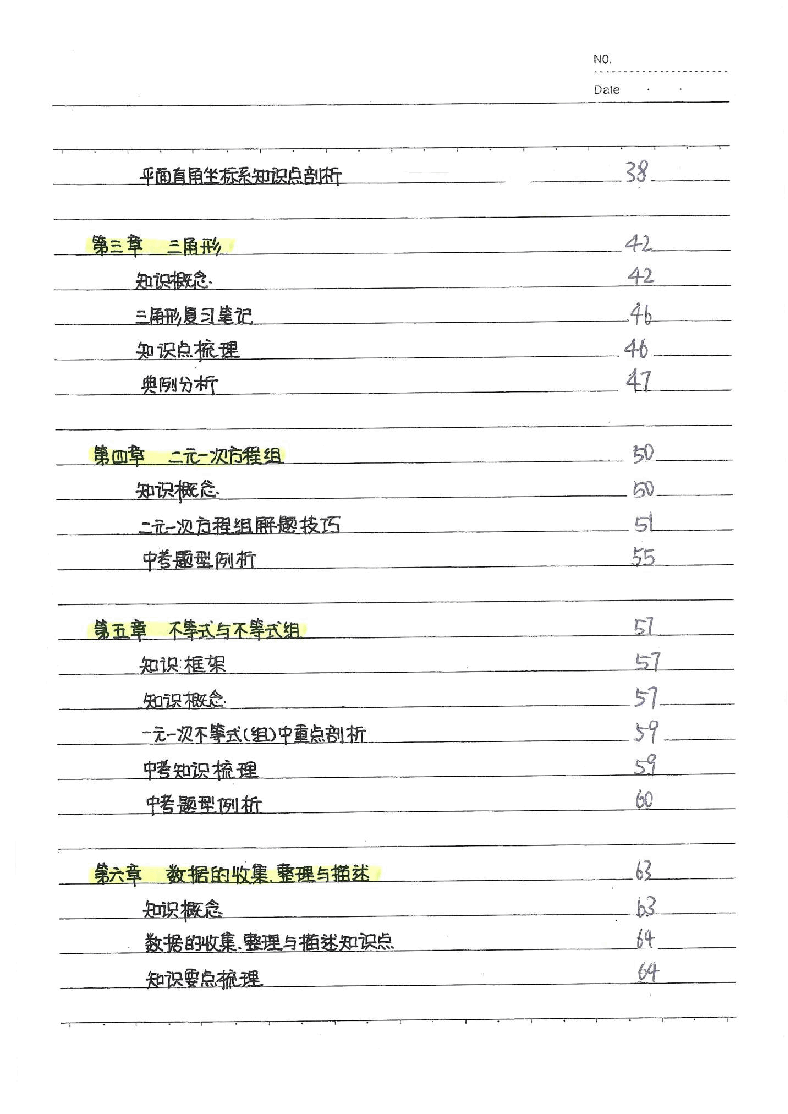 NO.
Date
平面直角坐标系知识点剖析 38
第三章 三角形 42
知识概念 42
三角形复习笔记 46
知识点梳理 46
典例分析 47
第四章 二元一次方程组 50
知识概念 50
二元一次方程组解题技巧 51
中考题型例析 55
第五章 不等式与不等式组 57
知识框架 57
知识概念 57
一元一次不等式(组)中重点剖析 59
中考知识梳理 59
中考题型例析 60
第六章 数据的收集、整理与描述 63
知识概念 63
数据的收集、整理与描述知识点 64
知识要点梳理 64